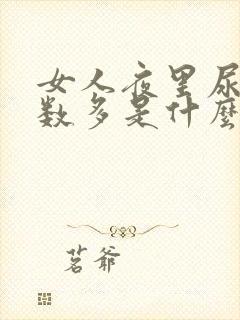 女人夜里尿
数多是什麼
茗爷